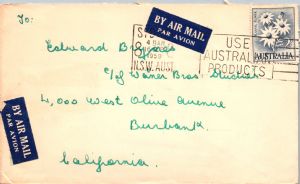 To:
BY AIR MAIL
PAR AVION
SYDNEY
1959
N.S.W. AUST
USE
AUSTRALIAN
PRODUCTS
2/-
AUSTRALIA
Edward Byrnes
c/of Waner Bros Studios
4,000 West Olive Avenue
Burbank.
California.
BY AIR MAIL
PAR AVION